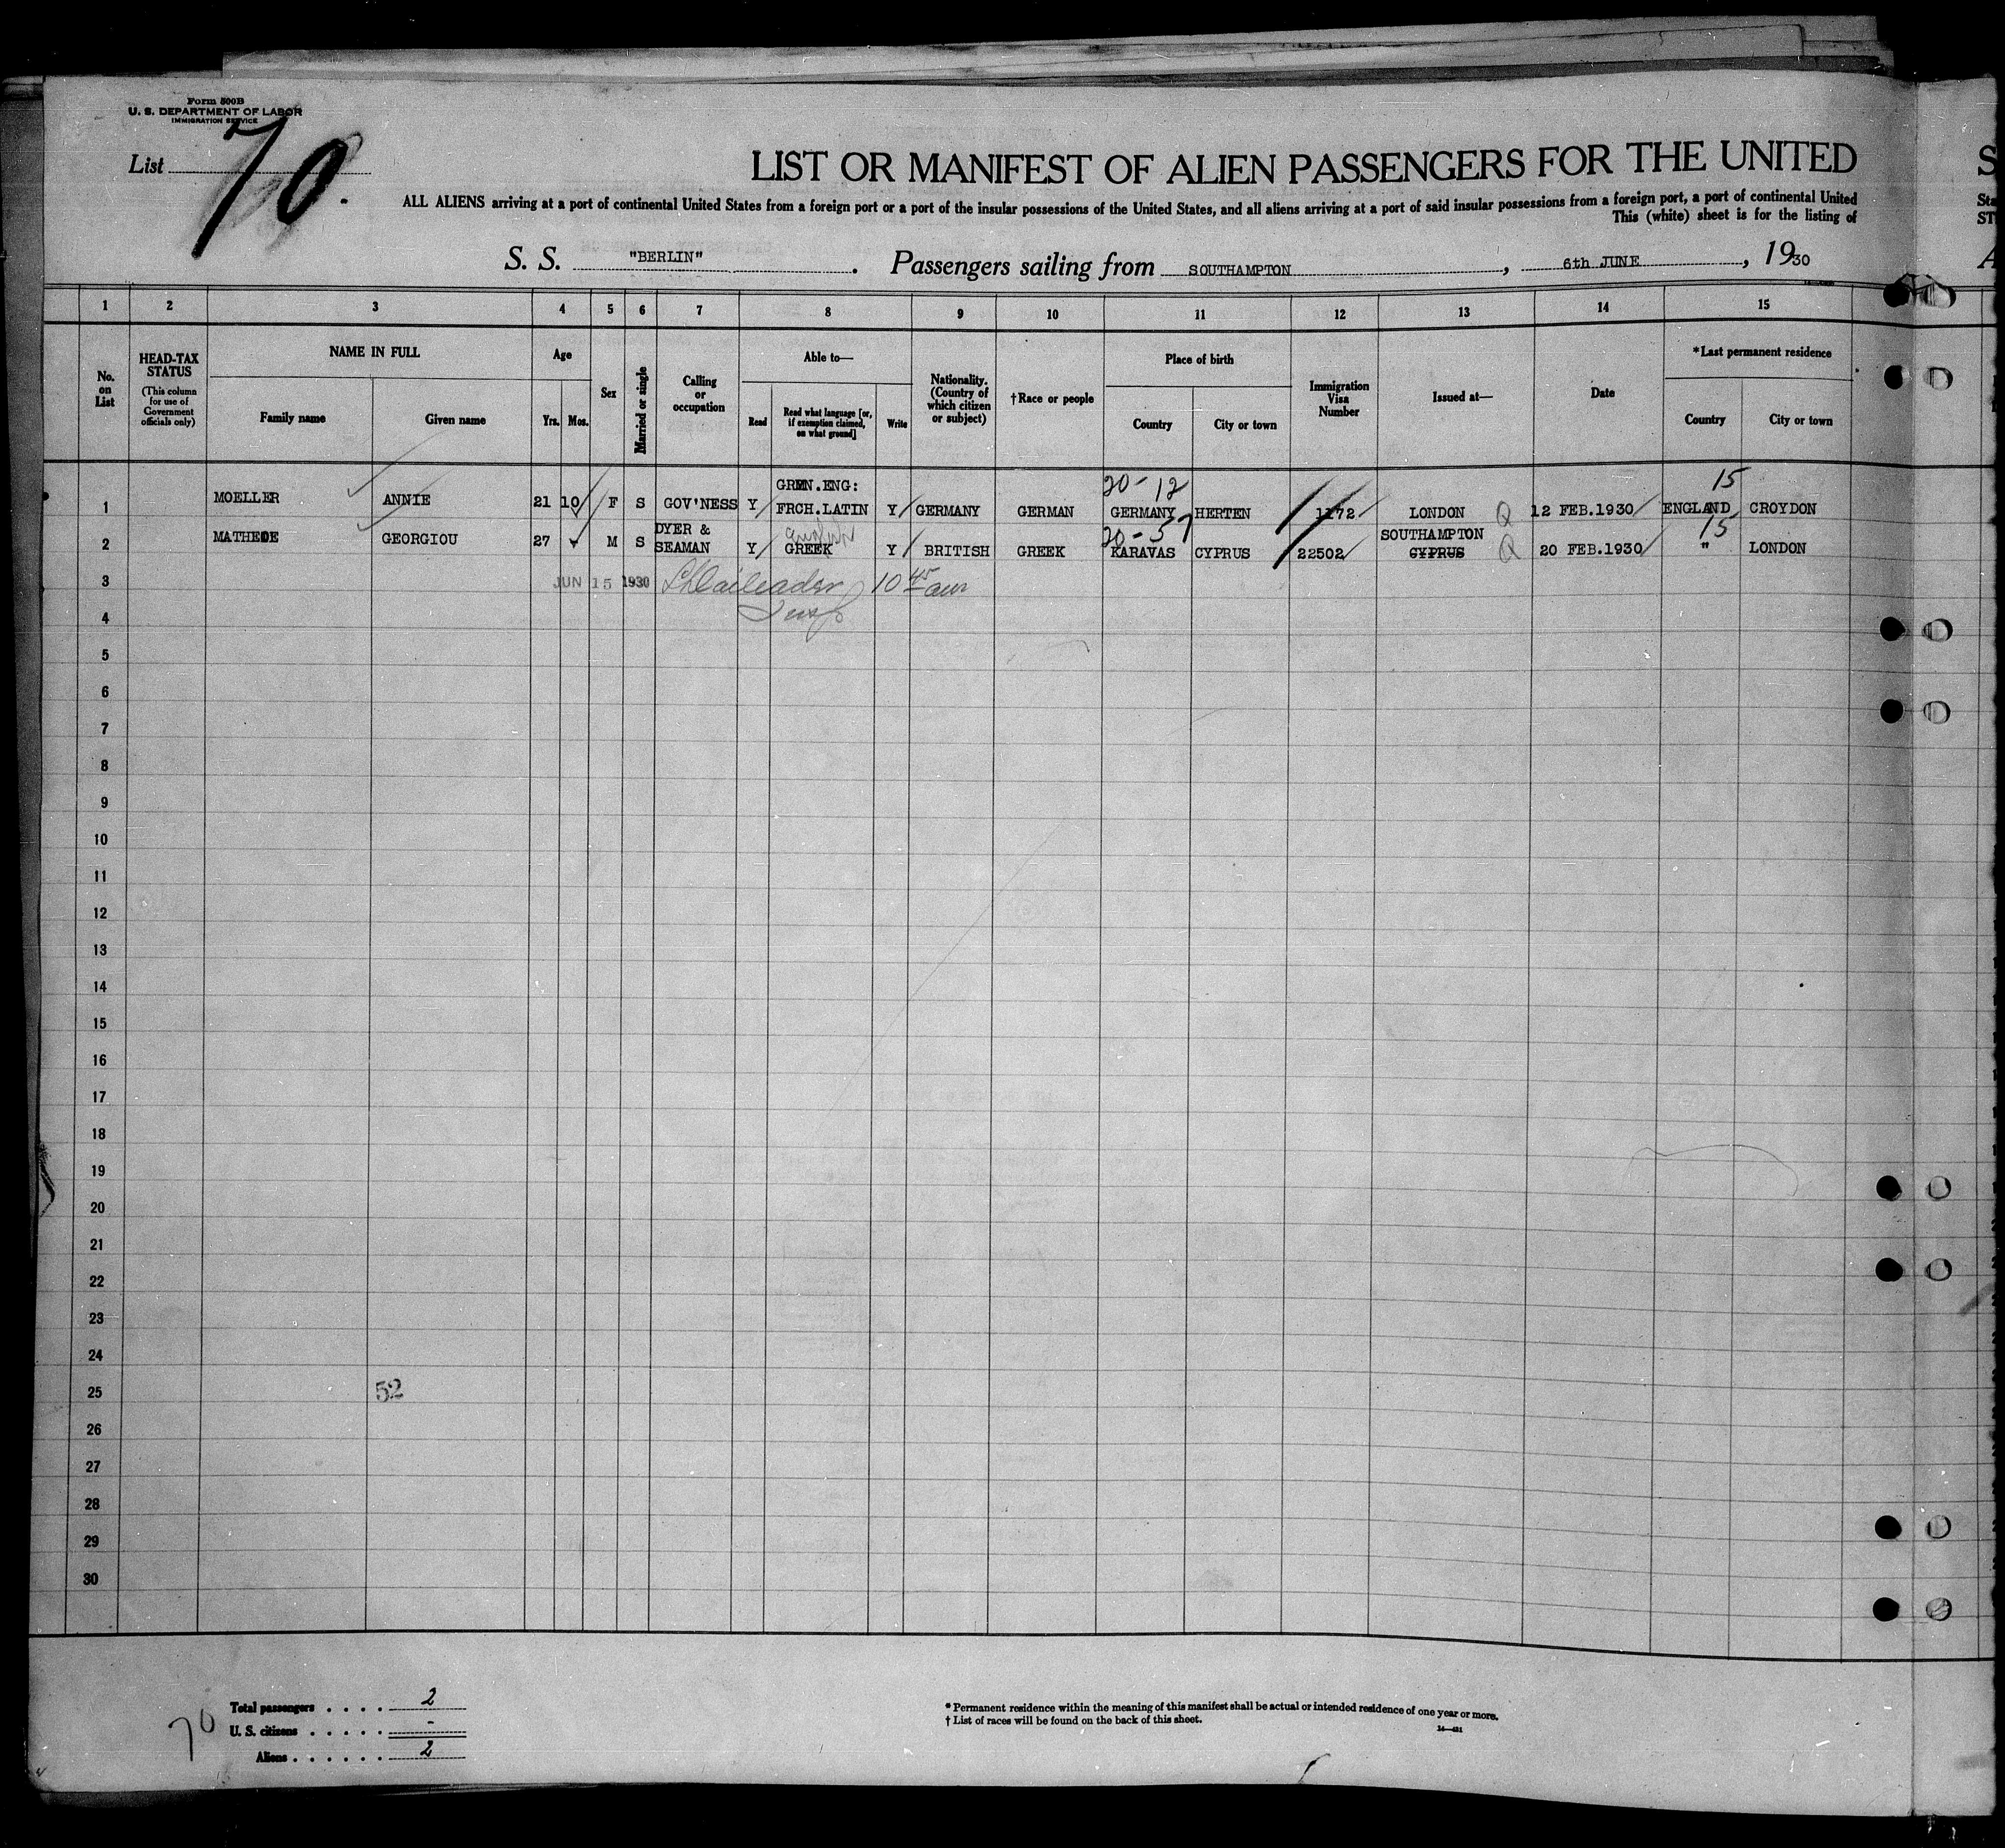 Form 500B
U. S. DEPARTMENT OF LABOR
IMMIGRATION SERVICE
List 70.
LIST OR MANIFEST OF ALIEN PASSENGERS FOR THE UNITED
ALL ALIENS arriving at a port of continental United States from a foreign port or a port of the insular possessions of the United States, and all aliens arriving at a port of said insular possessions from a foreign port, a port of continental United
This (white) sheet is for the listing of
S. S. "BERLIN". Passengers sailing from SOUTHAMPTON, 6th JUNE, 1930
1 2 3 4 5 6 7 8 9 10 11 12 13 14 15
No. on List
HEAD-TAX STATUS
(This column for use of Government officials only)
NAME IN FULL
Family name Given name
Age
Yrs. Mos.
Sex
Married or single
Calling or occupation
Able to—
Read
Read what language [or, if exemption claimed, on what ground]
Write
Nationality. (Country of which citizen or subject)
†Race or people
Place of birth
Country City or town
Immigration Visa Number
Issued at—
Date
*Last permanent residence
Country City or town
20-12 15
1 MOELLER ANNIE 21 10 F S GOV'NESS Y GRMN.ENG: FRCH.LATIN Y GERMANY GERMAN GERMANY HERTEN 1172 LONDON Q 12 FEB.1930 ENGLAND CROYDON
20-57 15
2 MATHEOE GEORGIOU 27 - M S DYER & SEAMAN Y English GREEK Y BRITISH GREEK KARAVAS CYPRUS 22502 SOUTHAMPTON CYPRUS Q 20 FEB.1930 " LONDON
3 JUN 15 1930 10 45 am
4 Insp
5
6
7
8
9
10
11
12
13
14
15
16
17
18
19
20
21
22
23
24
25 52
26
27
28
29
30
Total passengers . . . . 2
70 U. S. citizens . . . . . -
Aliens . . . . . . 2
* Permanent residence within the meaning of this manifest shall be actual or intended residence of one year or more.
† List of races will be found on the back of this sheet.